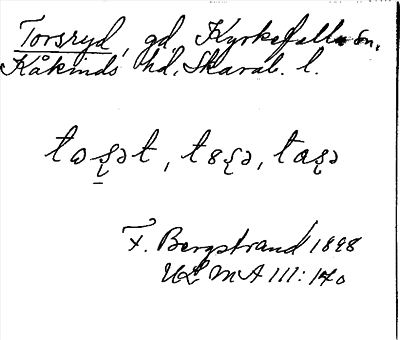 Torsryd, gd, Kyrkefalla sn,
Kåkinds hd, Skarab. l.
F. Bergstrand 1898
ULMA 111:140